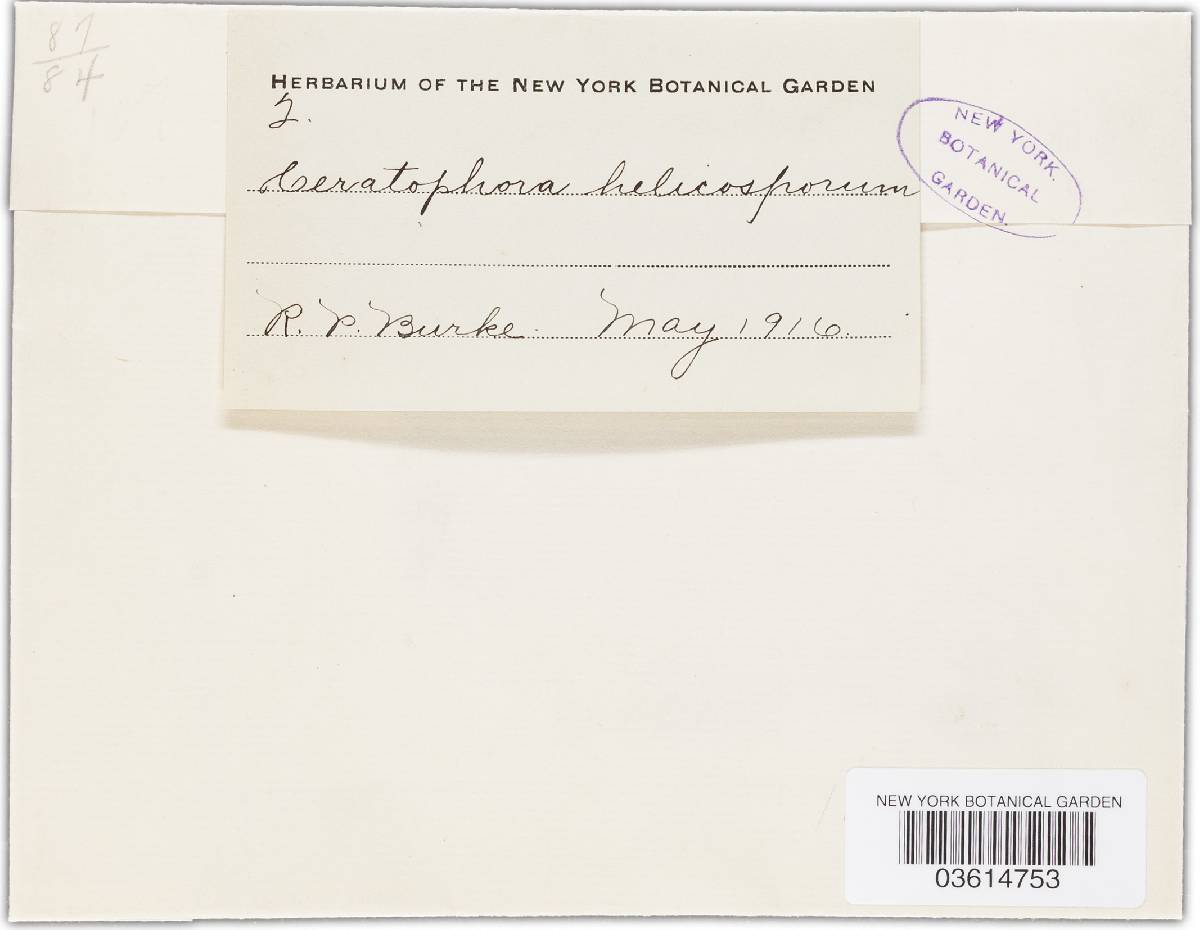 87
84
HERBARIUM OF THE NEW YORK BOTANICAL GARDEN
2.
Ceratophora helicosporum
R. P. Burke. May 1916.
NEW YORK
BOTANICAL
GARDEN.
NEW YORK BOTANICAL GARDEN
03614753